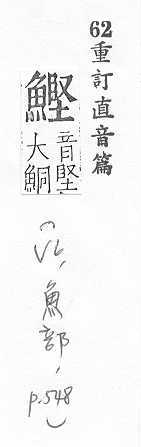 62重訂直音篇
鰹
音堅
大鮦
(VI,魚部,p.548)